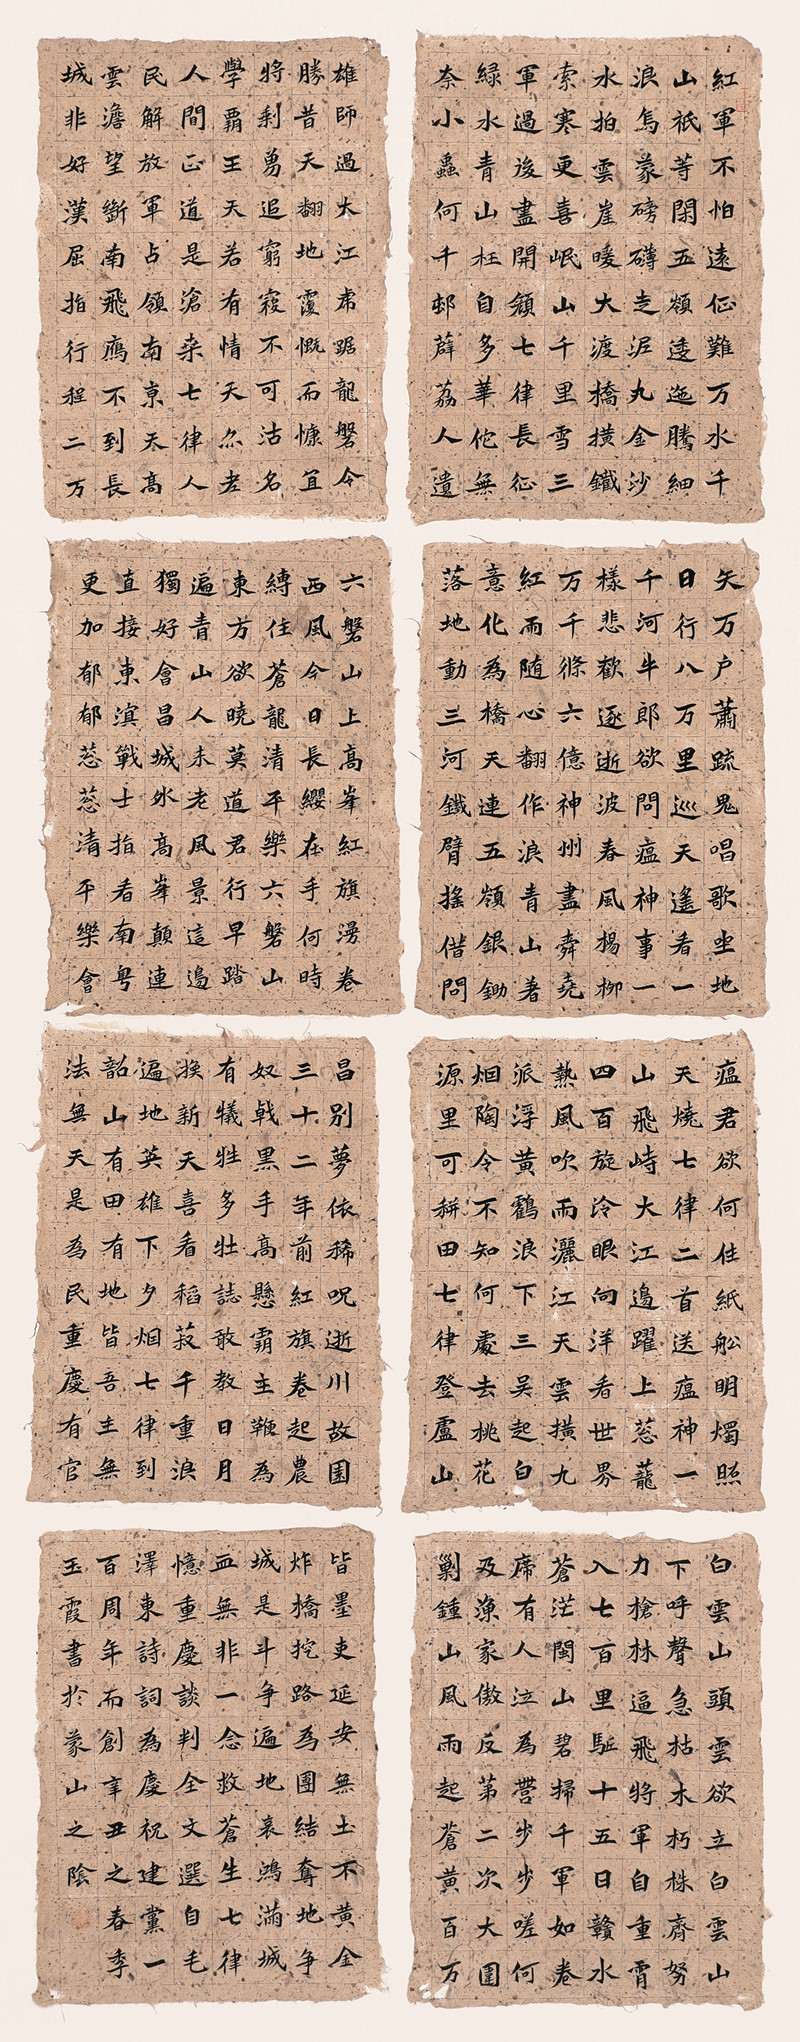 紅軍不怕遠征難万水千
山祇等閑五嶺逶迤騰細
浪烏蒙磅礴走泥丸金沙
水拍雲崖暖大渡橋橫鐵
索寒更喜岷山千里雪三
軍過後盡開顏七律長征
綠水青山枉自多華佗無
奈小蟲何千邨薜荔人遺
矢万户蕭疏鬼唱歌坐地
日行八万里巡天遙看一
千河牛郎欲問瘟神事一
樣悲歡逐逝波春風楊柳
万千條六億神州盡舜堯
紅雨随心翻作浪青山著
意化為橋天連五嶺銀鋤
落地動三河鐵臂搖借問
瘟君欲何往紙船明燭照
天燒七律二首送瘟神一
山飛峙大江邊躍上葱蘢
四百旋冷眼向洋看世界
熱風吹雨灑江天雲橫九
派浮黃鶴浪下三吳起白
烟陶令不知何處去桃花
源里可耕田七律登廬山
白雲山頭雲欲立白雲山
下呼聲急枯木朽株齊努
力槍林逼飛將軍自重霄
入七百里驅十五日贛水
蒼茫閩山碧掃千軍如卷
席有人泣為營步步嗟何
及漁家傲反第二次大圍
剿鍾山風雨起蒼黃百万
雄師過大江虎踞龍磐今
勝昔天翻地覆慨而慷宜
將剩勇追窮寇不可沽名
學霸王天若有情天亦老
人間正道是滄桑七律人
民解放軍占領南京天高
雲澹望斷南飛鴈不到長
城非好漢屈指行程二万
六磐山上高峯紅旗漫卷
西風今日長纓在手何時
縛住蒼龍清平樂六磐山
東方欲曉莫道君行早踏
遍青山人未老風景這邊
獨好會昌城外高峯顛連
直接東溟戰士指看南粵
更加郁郁葱葱清平樂會
昌別夢依稀呪逝川故園
三十二年前紅旗卷起農
奴戟黑手高懸霸主鞭為
有犧牲多壯誌敢教日月
換新天喜看稻菽千重浪
遍地英雄下夕烟七律到
韶山有田有地皆吾主無
法無天是為民重慶有官
皆墨吏延安無土不黃金
炸橋挖路為團結奪地争
城是斗争遍地哀鴻滿城
血無非一念救蒼生七律
憶重慶談判全文選自毛
澤東詩詞為慶祝建黨一
百周年而創辛丑之春季
玉霞書於蒙山之陰